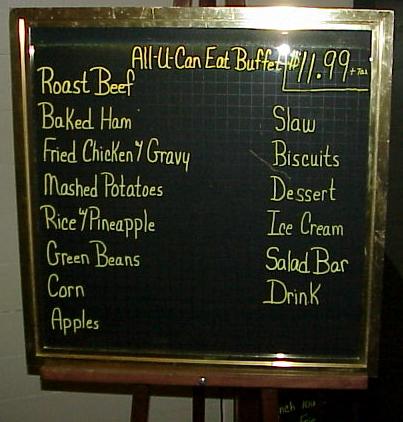 All-U-Can Eat Buffet $11.99 + Tax
Roast Beef
Baked Ham
Fried Chicken & Gravy
Mashed Potatoes
Rice & Pineapple
Green Beans
Corn
Apples
Slaw
Biscuits
Dessert
Ice Cream
Salad Bar
Drink